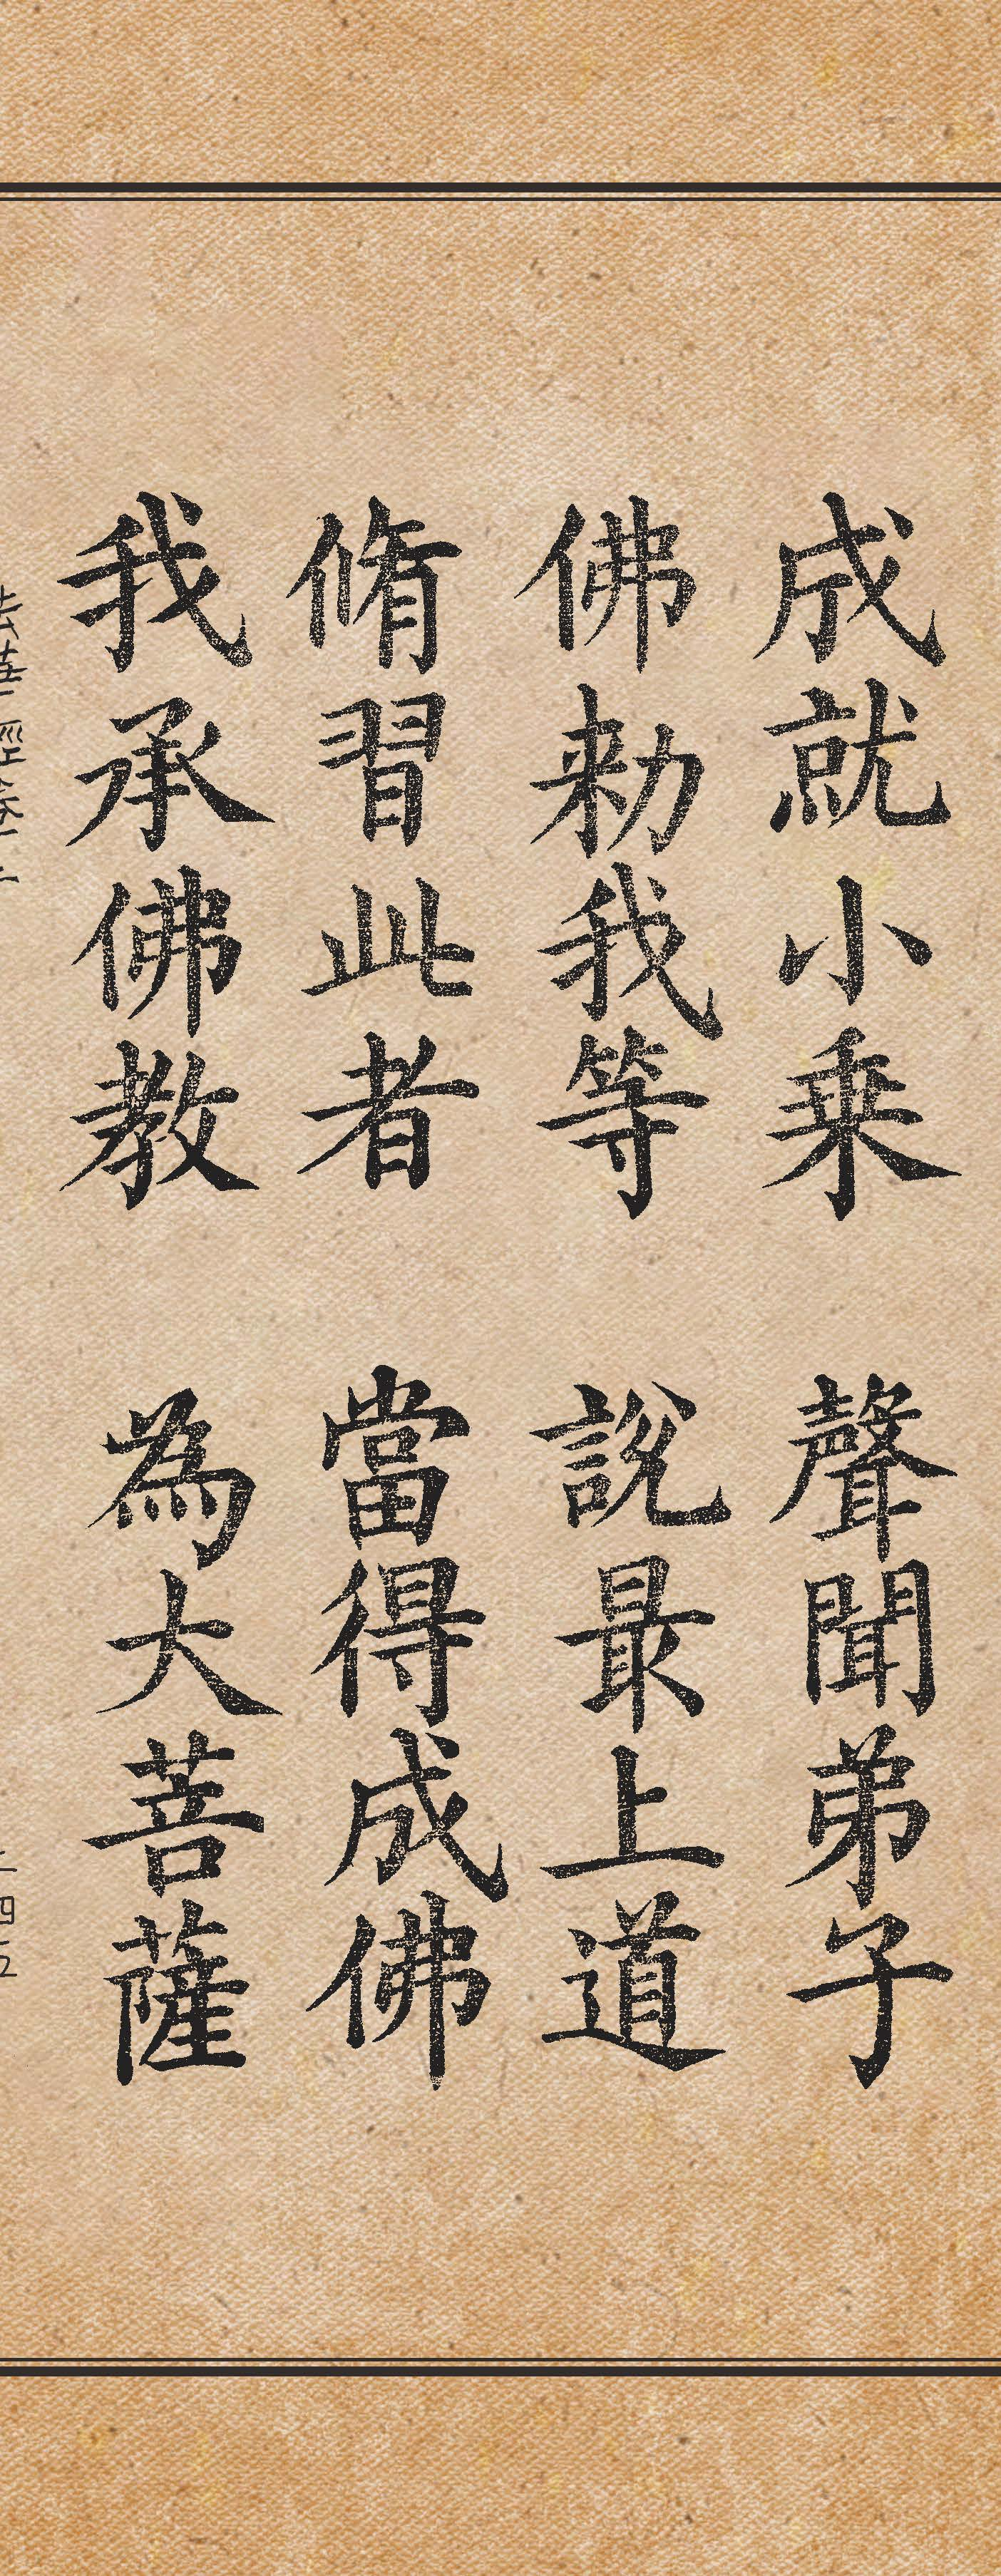 成就小乘　聲聞弟子
佛勅我等　說最上道
脩習此者　當得成佛
我承佛教　為大菩薩